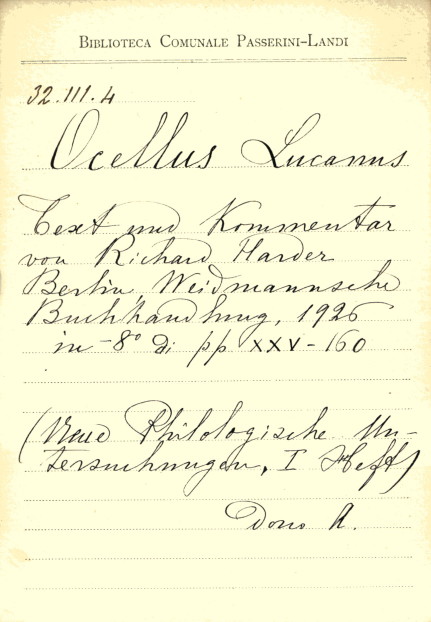 BIBLIOTECA COMUNALE PASSERINI-LANDI
32.III.4
Ocellus Lucanus
Text und Kommentar
von Richard Harder
Berlin Weidmannsche
Buchhandlung, 1926
in-8° di pp XXV-160
(Neue Philologische Un-
tersuchungen, I Heft)
Dono A.